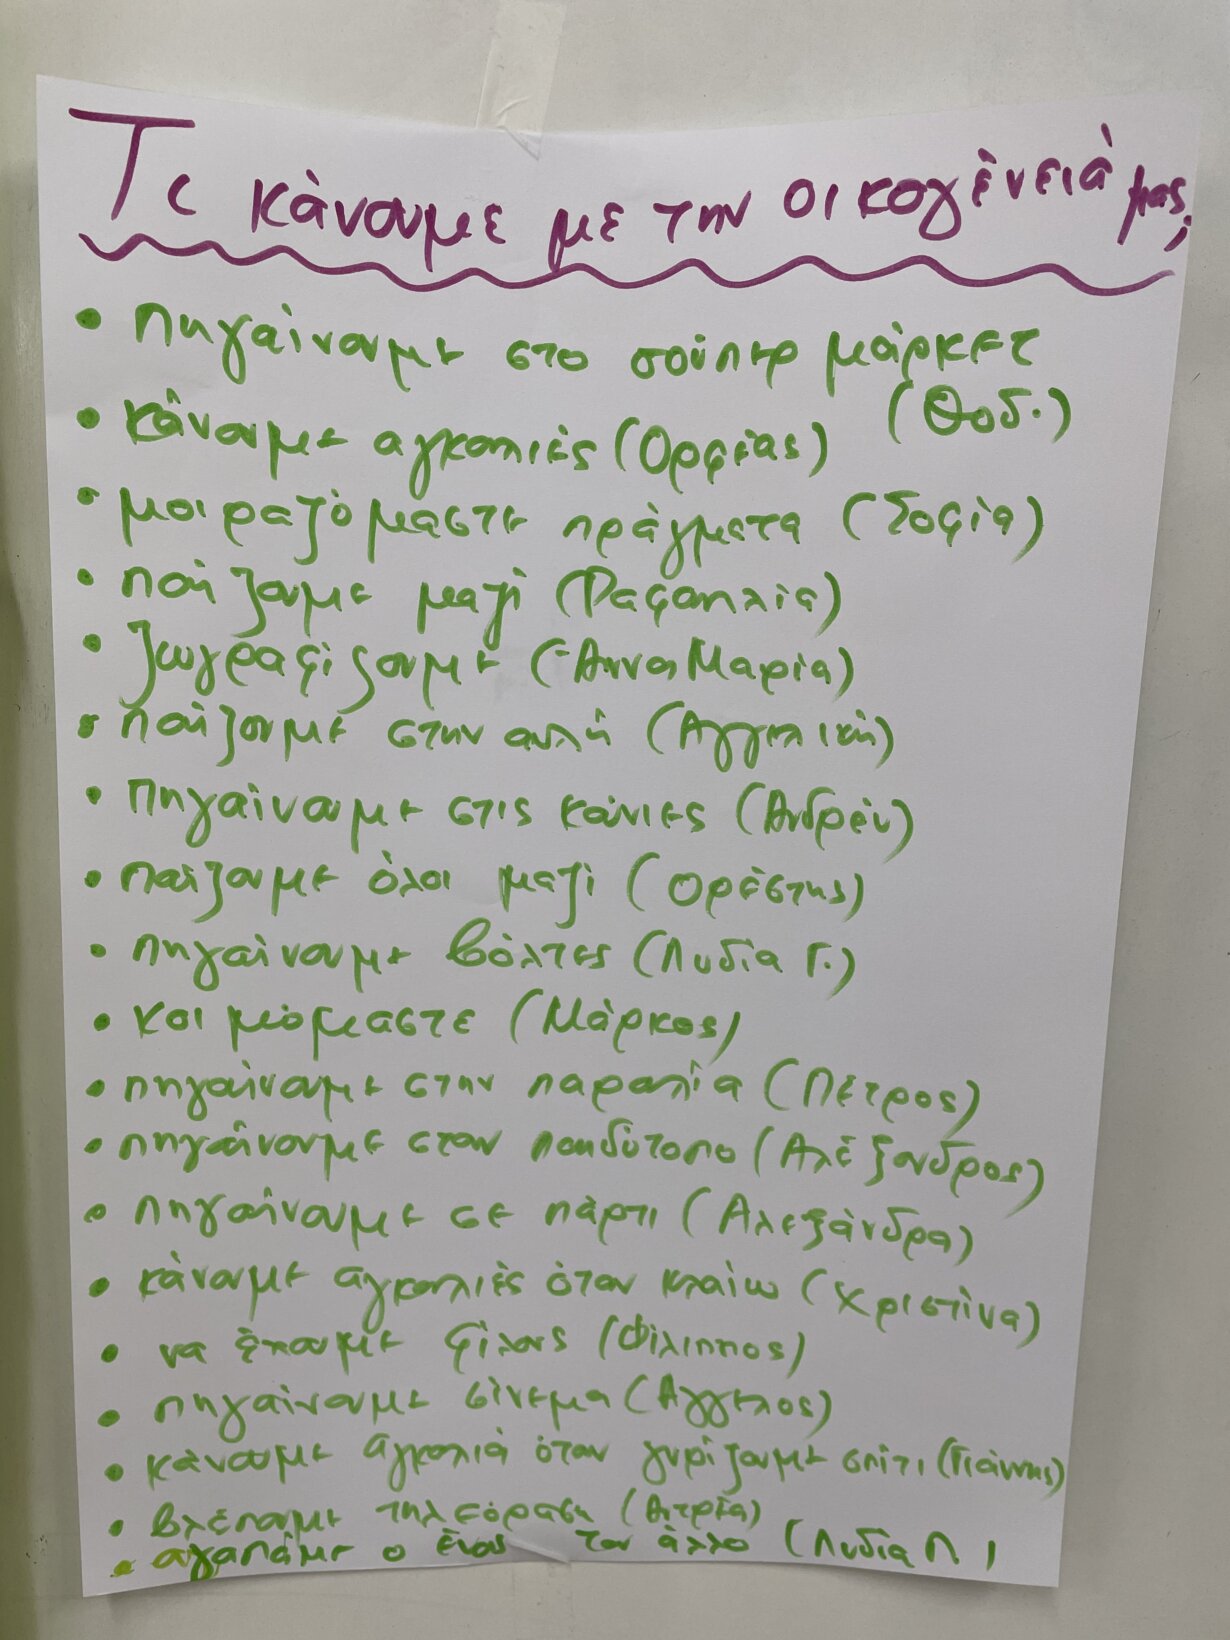 Τι κάνουμε με την οικογένειά μας;
• πηγαίνουμε στο σούπερ μάρκετ
(Θοδ.)
• κάνουμε αγκαλιές (Ορφέας)
• μοιραζόμαστε πράγματα (Σοφία)
• παίζουμε μαζί (Ραφαηλία)
• ζωγραφίζουμε (Άννα Μαρία)
• παίζουμε στην αυλή (Αγγελική)
• πηγαίνουμε στις κούνιες (Ανδρέυ)
• παίζουμε όλοι μαζί (Ορέστης)
• πηγαίνουμε βόλτες (Λυδία Γ.)
• κοιμόμαστε (Μάρκος)
• πηγαίνουμε στην παραλία (Πέτρος)
• πηγαίνουμε στον παιδότοπο (Αλέξανδρος)
• πηγαίνουμε σε πάρτι (Αλεξάνδρα)
• κάνουμε αγκαλιές όταν κλαίω (Χριστίνα)
• να έχουμε φίλους (Φίλιππος)
• πηγαίνουμε σίνεμα (Άγγελος)
• κάνουμε αγκαλιά όταν γυρίζουμε σπίτι (Γιάννης)
• βλέπουμε τηλεόραση
• αγαπάμε ο ένας τον άλλο (Λυδία Π.)